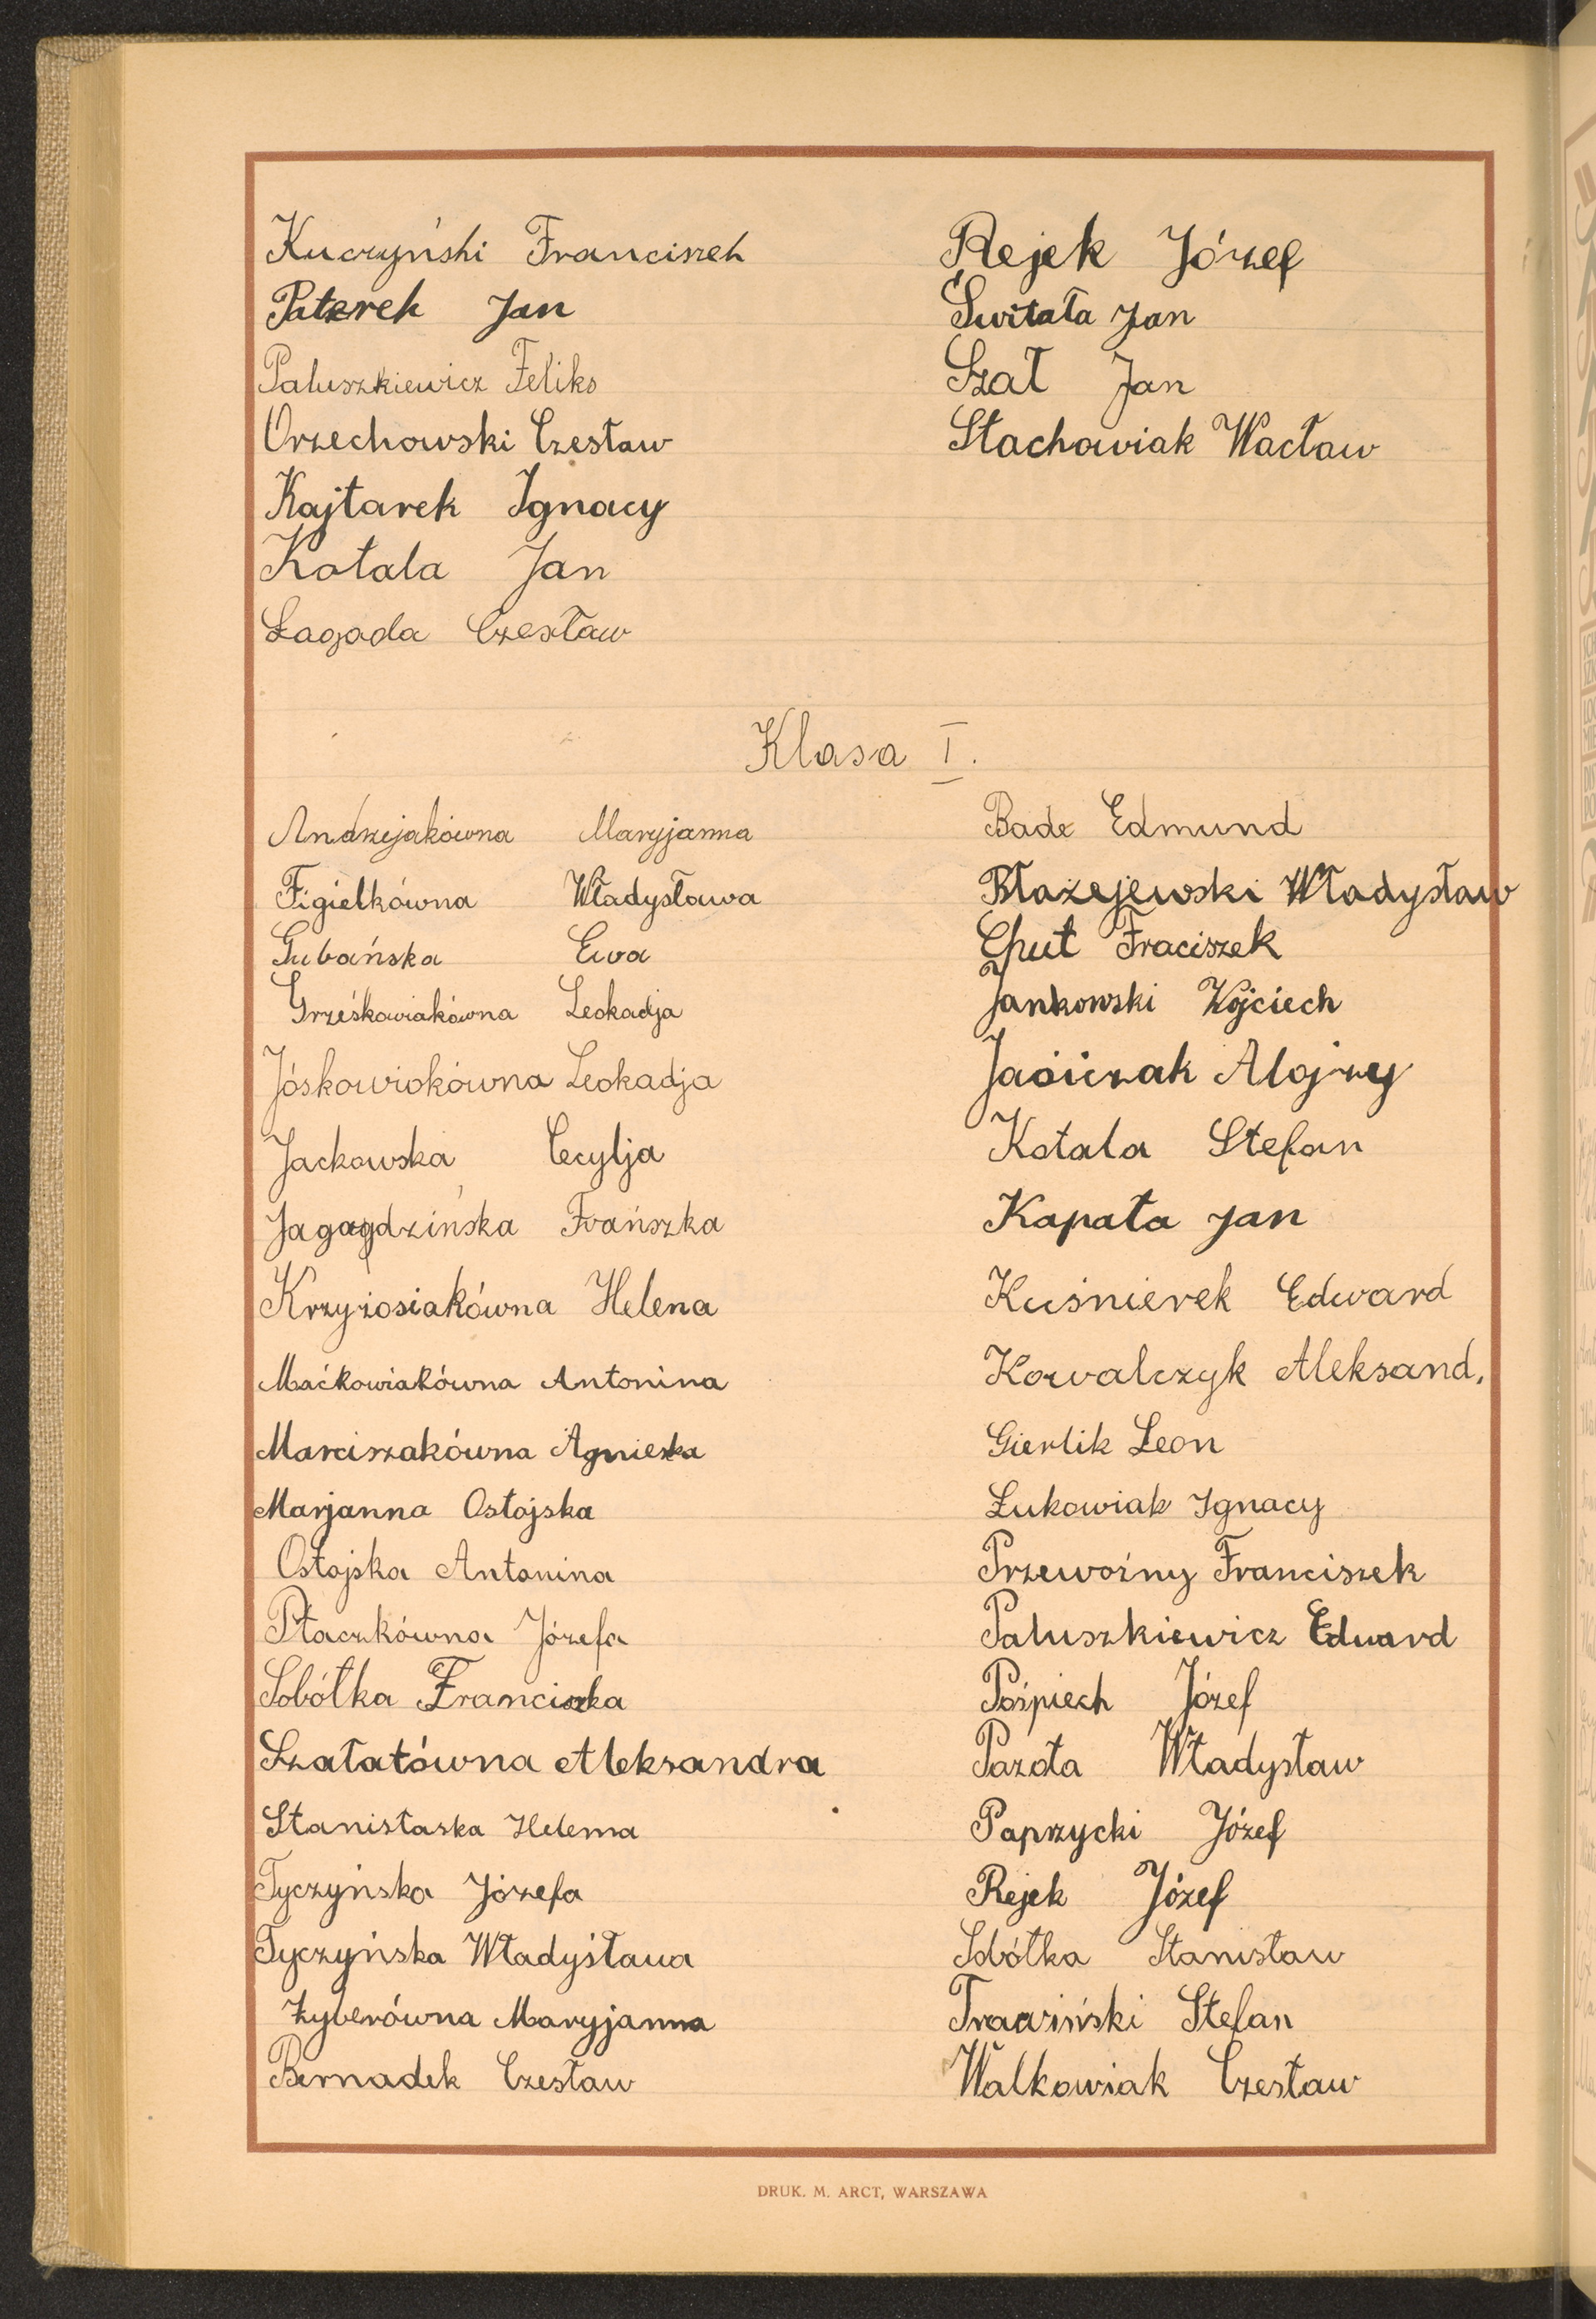 Kuczyński Franciszek
Paterek Jan
Paluszkiewicz Feliks
Orzechowski Czesław
Kajtarek Ignacy
Kotala Jan
Łagada Czesław
Rejek Józef
Świtała Jan
Szał Jan
Stachowiak Wacław
Klasa I.
Andrzejakówna Maryjanna
Figielkówna Władysława
Gubańska Ewa
Grześkowiakówna Leokadja
Jóskowiokówna Leokadja
Jackowska Cecylja
Jagagdzińska Frańszka
Krzyżosiakówna Helena
Maćkowiakówna Antonina
Marciszakówna Agnieszka
Marjanna Ostojska
Ostojska Antonina
Ptaczkówna Józefa
Sobótka Franciszka
Szałatówna Aleksandra
Stanisłaska Helema
Tyczyńska Józefa
Tyczyńska Władysława
Żyberówna Maryjanna
Bernadek Czesław
Bade Edmund
Błażejewski Władysław
Chut Fraciszek
Jankowski Wojciech
Jaśiczak Alojzy
Kotala Stefan
Kapała Jan
Kuśnierek Edward
Kowalczyk Aleksand.
Gierlik Leon
Łukowiak Ignacy
Przewoźny Franciszek
Paluszkiewicz Edward
Pośpiech Józef
Pazoła Władysław
Paprzycki Józef
Rejek Józef
Sobótka Stanisław
Trawiński Stefan
Walkowiak Czesław
DRUK. M. ARCT, WARSZAWA